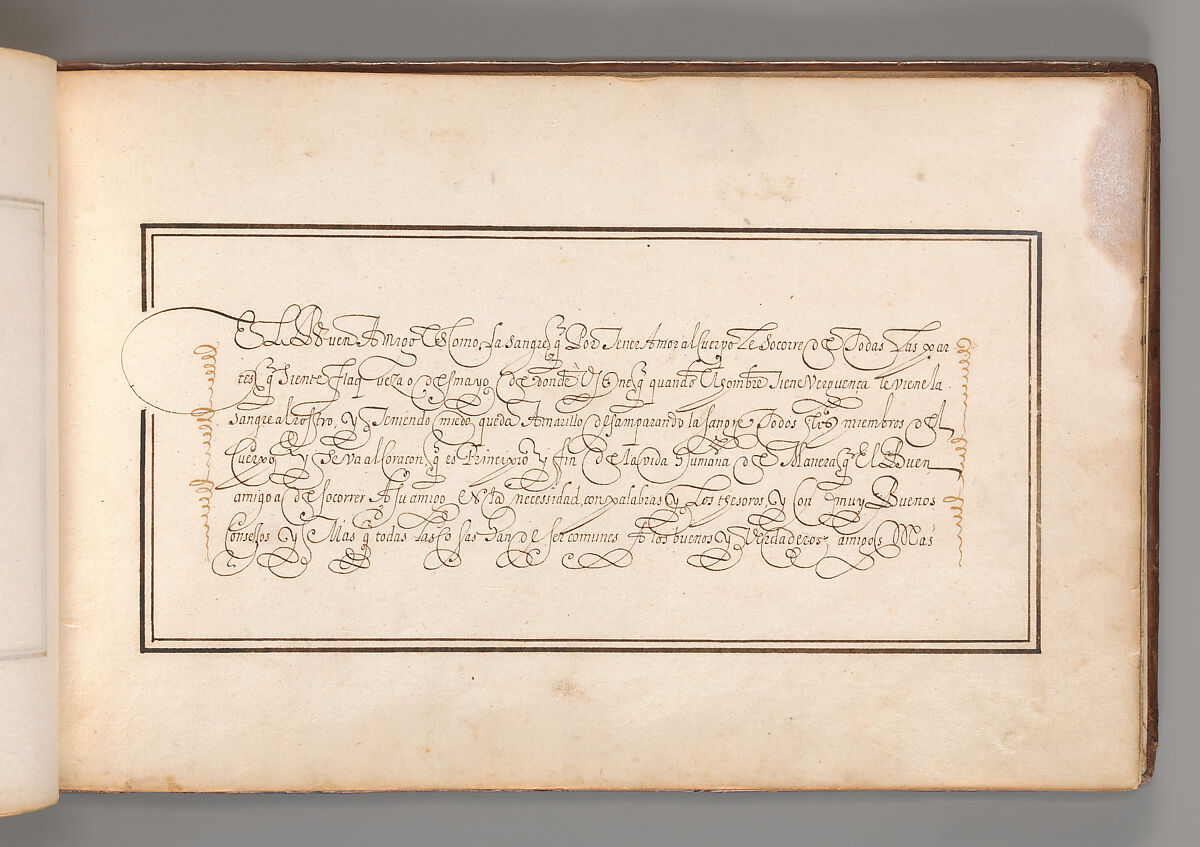 El Buen Amigo Es Como, la sangre q̃ Por Tener Amor al Cuerpo Le Socorre de Todas Las par
tes q̃ Siente flaqueza o desmayo, de donde Viene q̃ quando El hombre Tiene Verguença le viene la
sangre al Rostro, y Teniendo miedo queda Amarillo desamparando la sangre Todos los miembros del
Cuerpo y Se va al Coraçon, q̃ es Principio y fin de la vida humana de Manera q̃ El Buen
amigo a de socorrer A su amigo En la necessidad, con palabras y Los thesoros, y con muy Buenos
Consejos y Mas q̃ todas las Cosas han de ser comunes A los buenos y Verdaderos amigos Mas